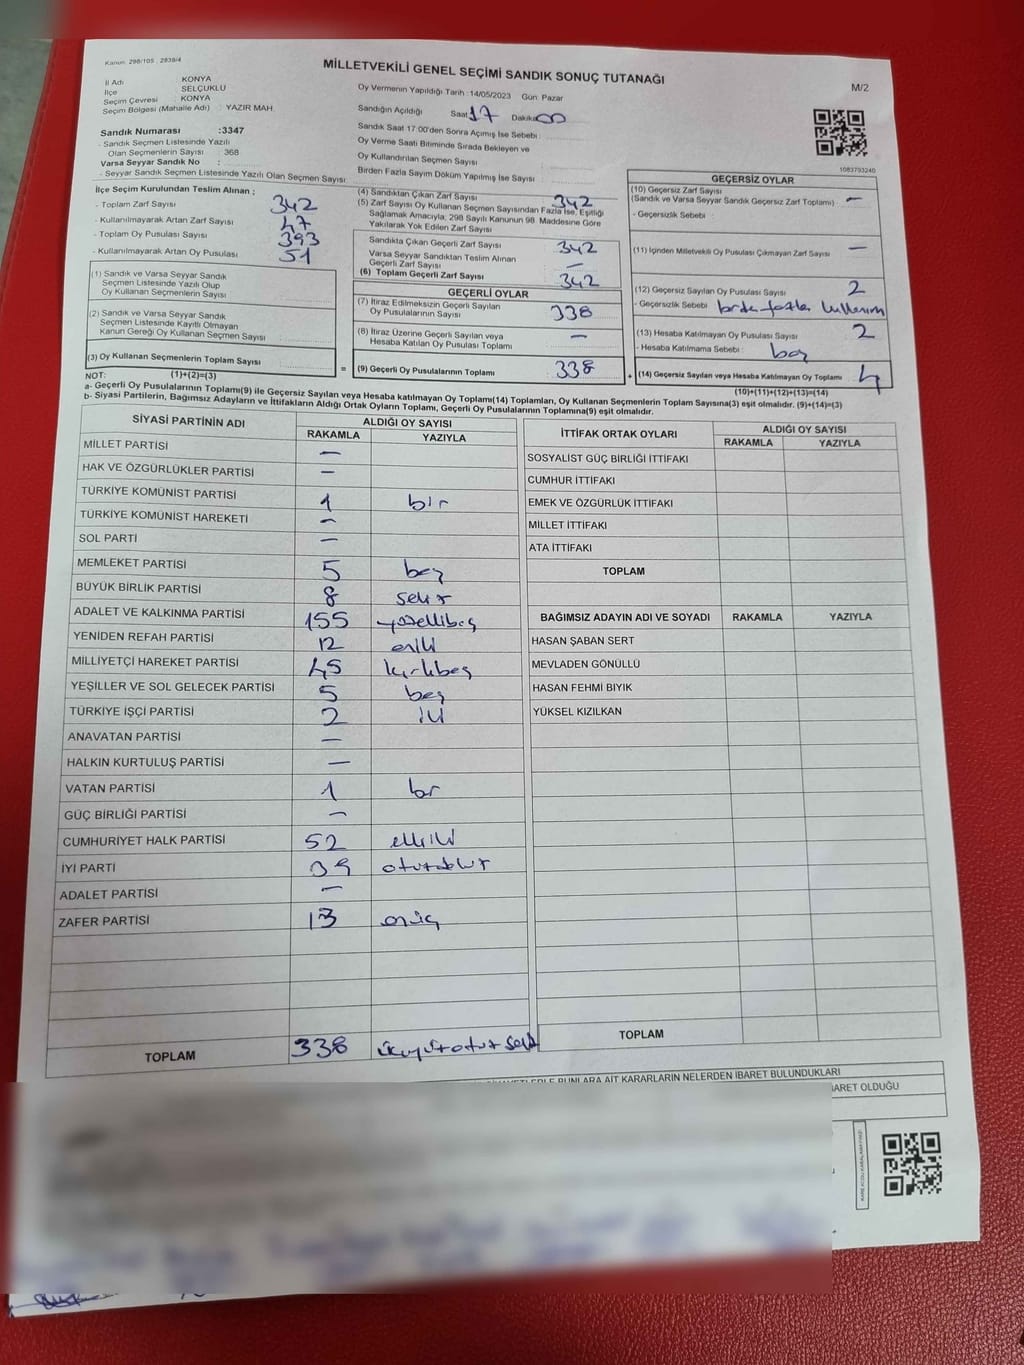 Kanun: 298/105 , 2839/4
MİLLETVEKİLİ GENEL SEÇİMİ SANDIK SONUÇ TUTANAĞI
M/2
İl Adı : KONYA
İlçe : SELÇUKLU
Seçim Çevresi : KONYA
Seçim Bölgesi (Mahalle Adı) : YAZIR MAH.
Oy Vermenin Yapıldığı Tarih :14/05/2023 Gün: Pazar
Sandığın Açıldığı Saat 17 Dakika 00
Sandık Saat 17:00'den Sonra Açımış İse Sebebi :
Oy Verme Saati Bitiminde Sırada Bekleyen ve
Oy Kullandırılan Seçmen Sayısı
Birden Fazla Sayım Döküm Yapılmış İse Sayısı :
Sandık Numarası :3347
- Sandık Seçmen Listesinde Yazılı
Olan Seçmenlerin Sayısı : 368
Varsa Seyyar Sandık No :
- Seyyar Sandık Seçmen Listesinde Yazılı Olan Seçmen Sayısı:
1083793240
İlçe Seçim Kurulundan Teslim Alınan ;
- Toplam Zarf Sayısı 342
- Kullanılmayarak Artan Zarf Sayısı 47
- Toplam Oy Pusulası Sayısı 393
- Kullanılmayarak Artan Oy Pusulası 51
(1) Sandık ve Varsa Seyyar Sandık
Seçmen Listesinde Yazılı Olup
Oy Kullanan Seçmenlerin Sayısı
(2) Sandık ve Varsa Seyyar Sandık
Seçmen Listesinde Kayıtlı Olmayan
Kanun Gereği Oy Kullanan Seçmen Sayısı
(3) Oy Kullanan Seçmenlerin Toplam Sayısı =
(4) Sandıktan Çıkan Zarf Sayısı 342
(5) Zarf Sayısı Oy Kullanan Seçmen Sayısından Fazla İse, Eşitliği
Sağlamak Amacıyla, 298 Sayılı Kanunun 98. Maddesine Göre
Yakılarak Yok Edilen Zarf Sayısı
Sandıkta Çıkan Geçerli Zarf Sayısı 342
Varsa Seyyar Sandıktan Teslim Alınan
Geçerli Zarf Sayısı —
(6) Toplam Geçerli Zarf Sayısı 342
GEÇERLİ OYLAR
(7) İtiraz Edilmeksizin Geçerli Sayılan
Oy Pusulalarının Sayısı 338
(8) İtiraz Üzerine Geçerli Sayılan veya
Hesaba Katılan Oy Pusulası Toplamı —
(9) Geçerli Oy Pusulalarının Toplamı 338 +
GEÇERSİZ OYLAR
(10) Geçersiz Zarf Sayısı
(Sandık ve Varsa Seyyar Sandık Geçersiz Zarf Toplamı) —
- Geçersizlik Sebebi :
(11) İçinden Milletvekili Oy Pusulası Çıkmayan Zarf Sayısı —
(12) Geçersiz Sayılan Oy Pusulası Sayısı 2
- Geçersizlik Sebebi
(13) Hesaba Katılmayan Oy Pusulası Sayısı 2
- Hesaba Katılmama Sebebi : boş
(14) Geçersiz Sayılan veya Hesaba Katılmayan Oy Toplamı 4
NOT: (1)+(2)=(3)
(10)+(11)+(12)+(13)=(14)
a- Geçerli Oy Pusulalarının Toplamı(9) ile Geçersiz Sayılan veya Hesaba Katılmayan oy Toplamı(14) Toplamları, Oy Kullanan Seçmenlerin Toplam Sayısına(3) eşit olmalıdır. (9)+(14)=(3)
b- Siyasi Partilerin, Bağımsız Adayların ve İttifakların Aldığı Ortak Oyların Toplamı, Geçerli Oy Pusulalarının Toplamına(9) eşit olmalıdır.
SİYASİ PARTİNİN ADI
ALDIĞI OY SAYISI
RAKAMLA YAZIYLA
MİLLET PARTİSİ —
HAK VE ÖZGÜRLÜKLER PARTİSİ —
TÜRKİYE KOMÜNİST PARTİSİ 1 bir
TÜRKİYE KOMÜNİST HAREKETİ —
SOL PARTİ —
MEMLEKET PARTİSİ 5 beş
BÜYÜK BİRLİK PARTİSİ 8 sekiz
ADALET VE KALKINMA PARTİSİ 155 yüzellibeş
YENİDEN REFAH PARTİSİ 12 oniki
MİLLİYETÇİ HAREKET PARTİSİ 45 kırkbeş
YEŞİLLER VE SOL GELECEK PARTİSİ 5 beş
TÜRKİYE İŞÇİ PARTİSİ 2 iki
ANAVATAN PARTİSİ —
HALKIN KURTULUŞ PARTİSİ —
VATAN PARTİSİ 1 bir
GÜÇ BİRLİĞİ PARTİSİ —
CUMHURİYET HALK PARTİSİ 52 elliiki
İYİ PARTİ 39 otuzdokuz
ADALET PARTİSİ —
ZAFER PARTİSİ 13 onüç
TOPLAM 338 üçyüzotuzsekiz
İTTİFAK ORTAK OYLARI
ALDIĞI OY SAYISI
RAKAMLA YAZIYLA
SOSYALİST GÜÇ BİRLİĞİ İTTİFAKI
CUMHUR İTTİFAKI
EMEK VE ÖZGÜRLÜK İTTİFAKI
MİLLET İTTİFAKI
ATA İTTİFAKI
TOPLAM
BAĞIMSIZ ADAYIN ADI VE SOYADI RAKAMLA YAZIYLA
HASAN ŞABAN SERT
MEVLADEN GÖNÜLLÜ
HASAN FEHMİ BIYIK
YÜKSEL KIZILKAN
TOPLAM
BUNLARA AİT KARARLARIN NELERDEN İBARET BULUNDUKLARI
İBARET OLDUĞU